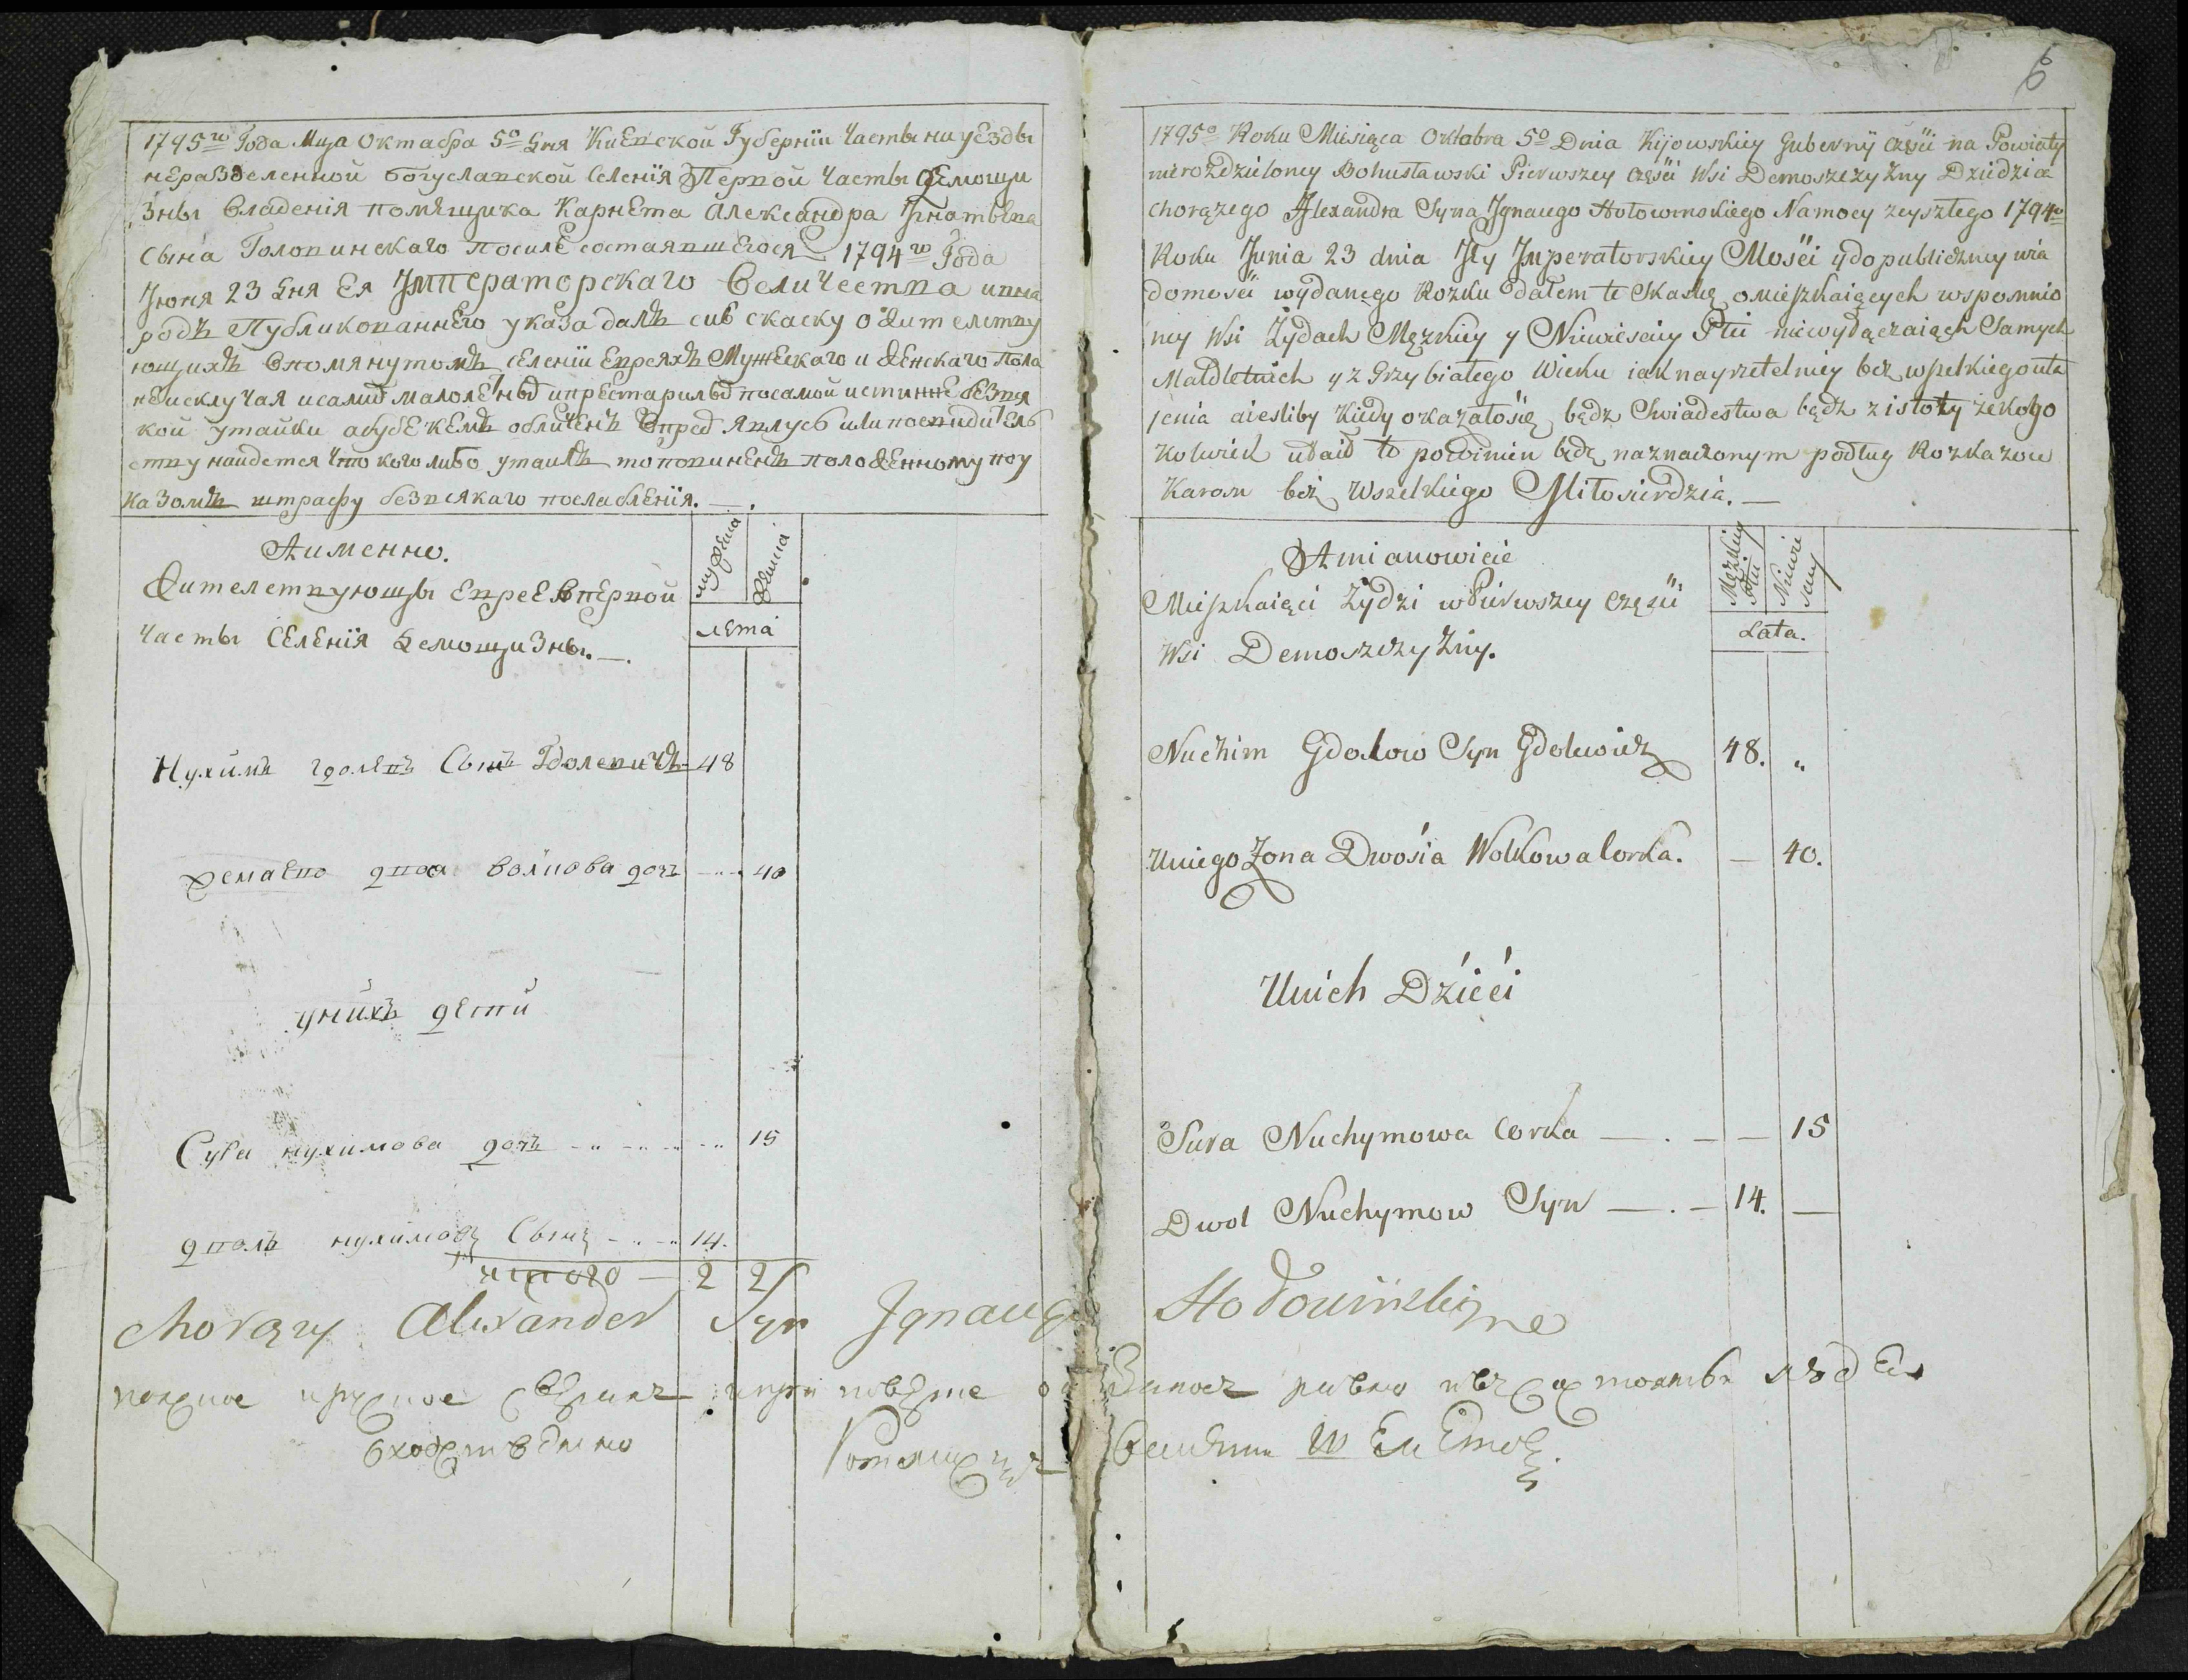 1795го Года Мца Октабра 5о дня Киевской Губернїи Часты на уезды
неразделенной богуславской Селенїя Первой Часты демощи
зны Владенїя помѣщика Карнета Александра Игнатьева
Сына Головинскаго посиле состаявшегося 1794го Года
Июня 23 дня Ея Императорскаго Величества ивна
родъ Публикованнего указа далъ сию скаску о жителству
ющихъ Впомянутомъ селенїи Евреяхъ Мужескаго и Женскаго Пола
неисключая исамих малолених ипрестарилых посамой истинне безвся
кой утайки абуде кемъ обличенъ Впред явлусь или посвидитель
ству найдется что кого либо утаилъ то повиненъ положенному поу
казомъ штрафу безвсякаго послабленїя.
Аименно.
Жителствующы Евреи Вперпой
Часты Селенїя Демощизны.
мужеска
женска
лета
Нухимъ гдолевъ Сынъ Гдолевичъ 48
жена его двося волкова дочъ 40
унихъ дети
Сура нухимова дочъ 15
дволъ нухимовъ Сынъ 14.
итого 2 2
Chorąży Alexander Syn Ignacego Hołowinski
6
1795o Roku Miesiąca Oktobra 5o Dnia Kijowskiey Gubernÿ części na Powiaty
nierozdzieloney Bohusławski Pierwszey części Wsi Demoszczyzny Dziedzica
chorązego Alexandra Syna Ignacego Hołowinskiego Namocy zeyszłego 1794o
Roku Junia 23 dnia Jey Imperatorskiey Mości ydopubliczney wia
domości wydanego Rozku dałem tę Skaskę omieszkaiących wspomnio
ney Wsi Zydach Męzkiey y Niewiesciey Płci niewyłączaiąch Samych
Małoletnich y z Grzybiałego Wieku iak nayrzetelniey bez wszelkiego uta
jenia aiesliby kiedy okazałosię bądz Swiadestwa bądz z istoty że kogo
kolwiek utaił to powinien będę naznaczonym podług Rozkazow
Karom bez Wszelkiego Miłosierdzia.
Amianowicie
Mieszkaiąci Zydzi wPierwszey Części
Wsi Demoszczyzny.
Męzkiey Płci
Niewie sciey
Lata.
Nuchim Gdolow Syn Gdolewicz 48. „
Uniego Zona Dwosia Wolkowa Corka. — 40.
Unich Dzieci
Sura Nuchymowa Corka — . — — 15
Dwol Nuchymow Syn — . — 14. —